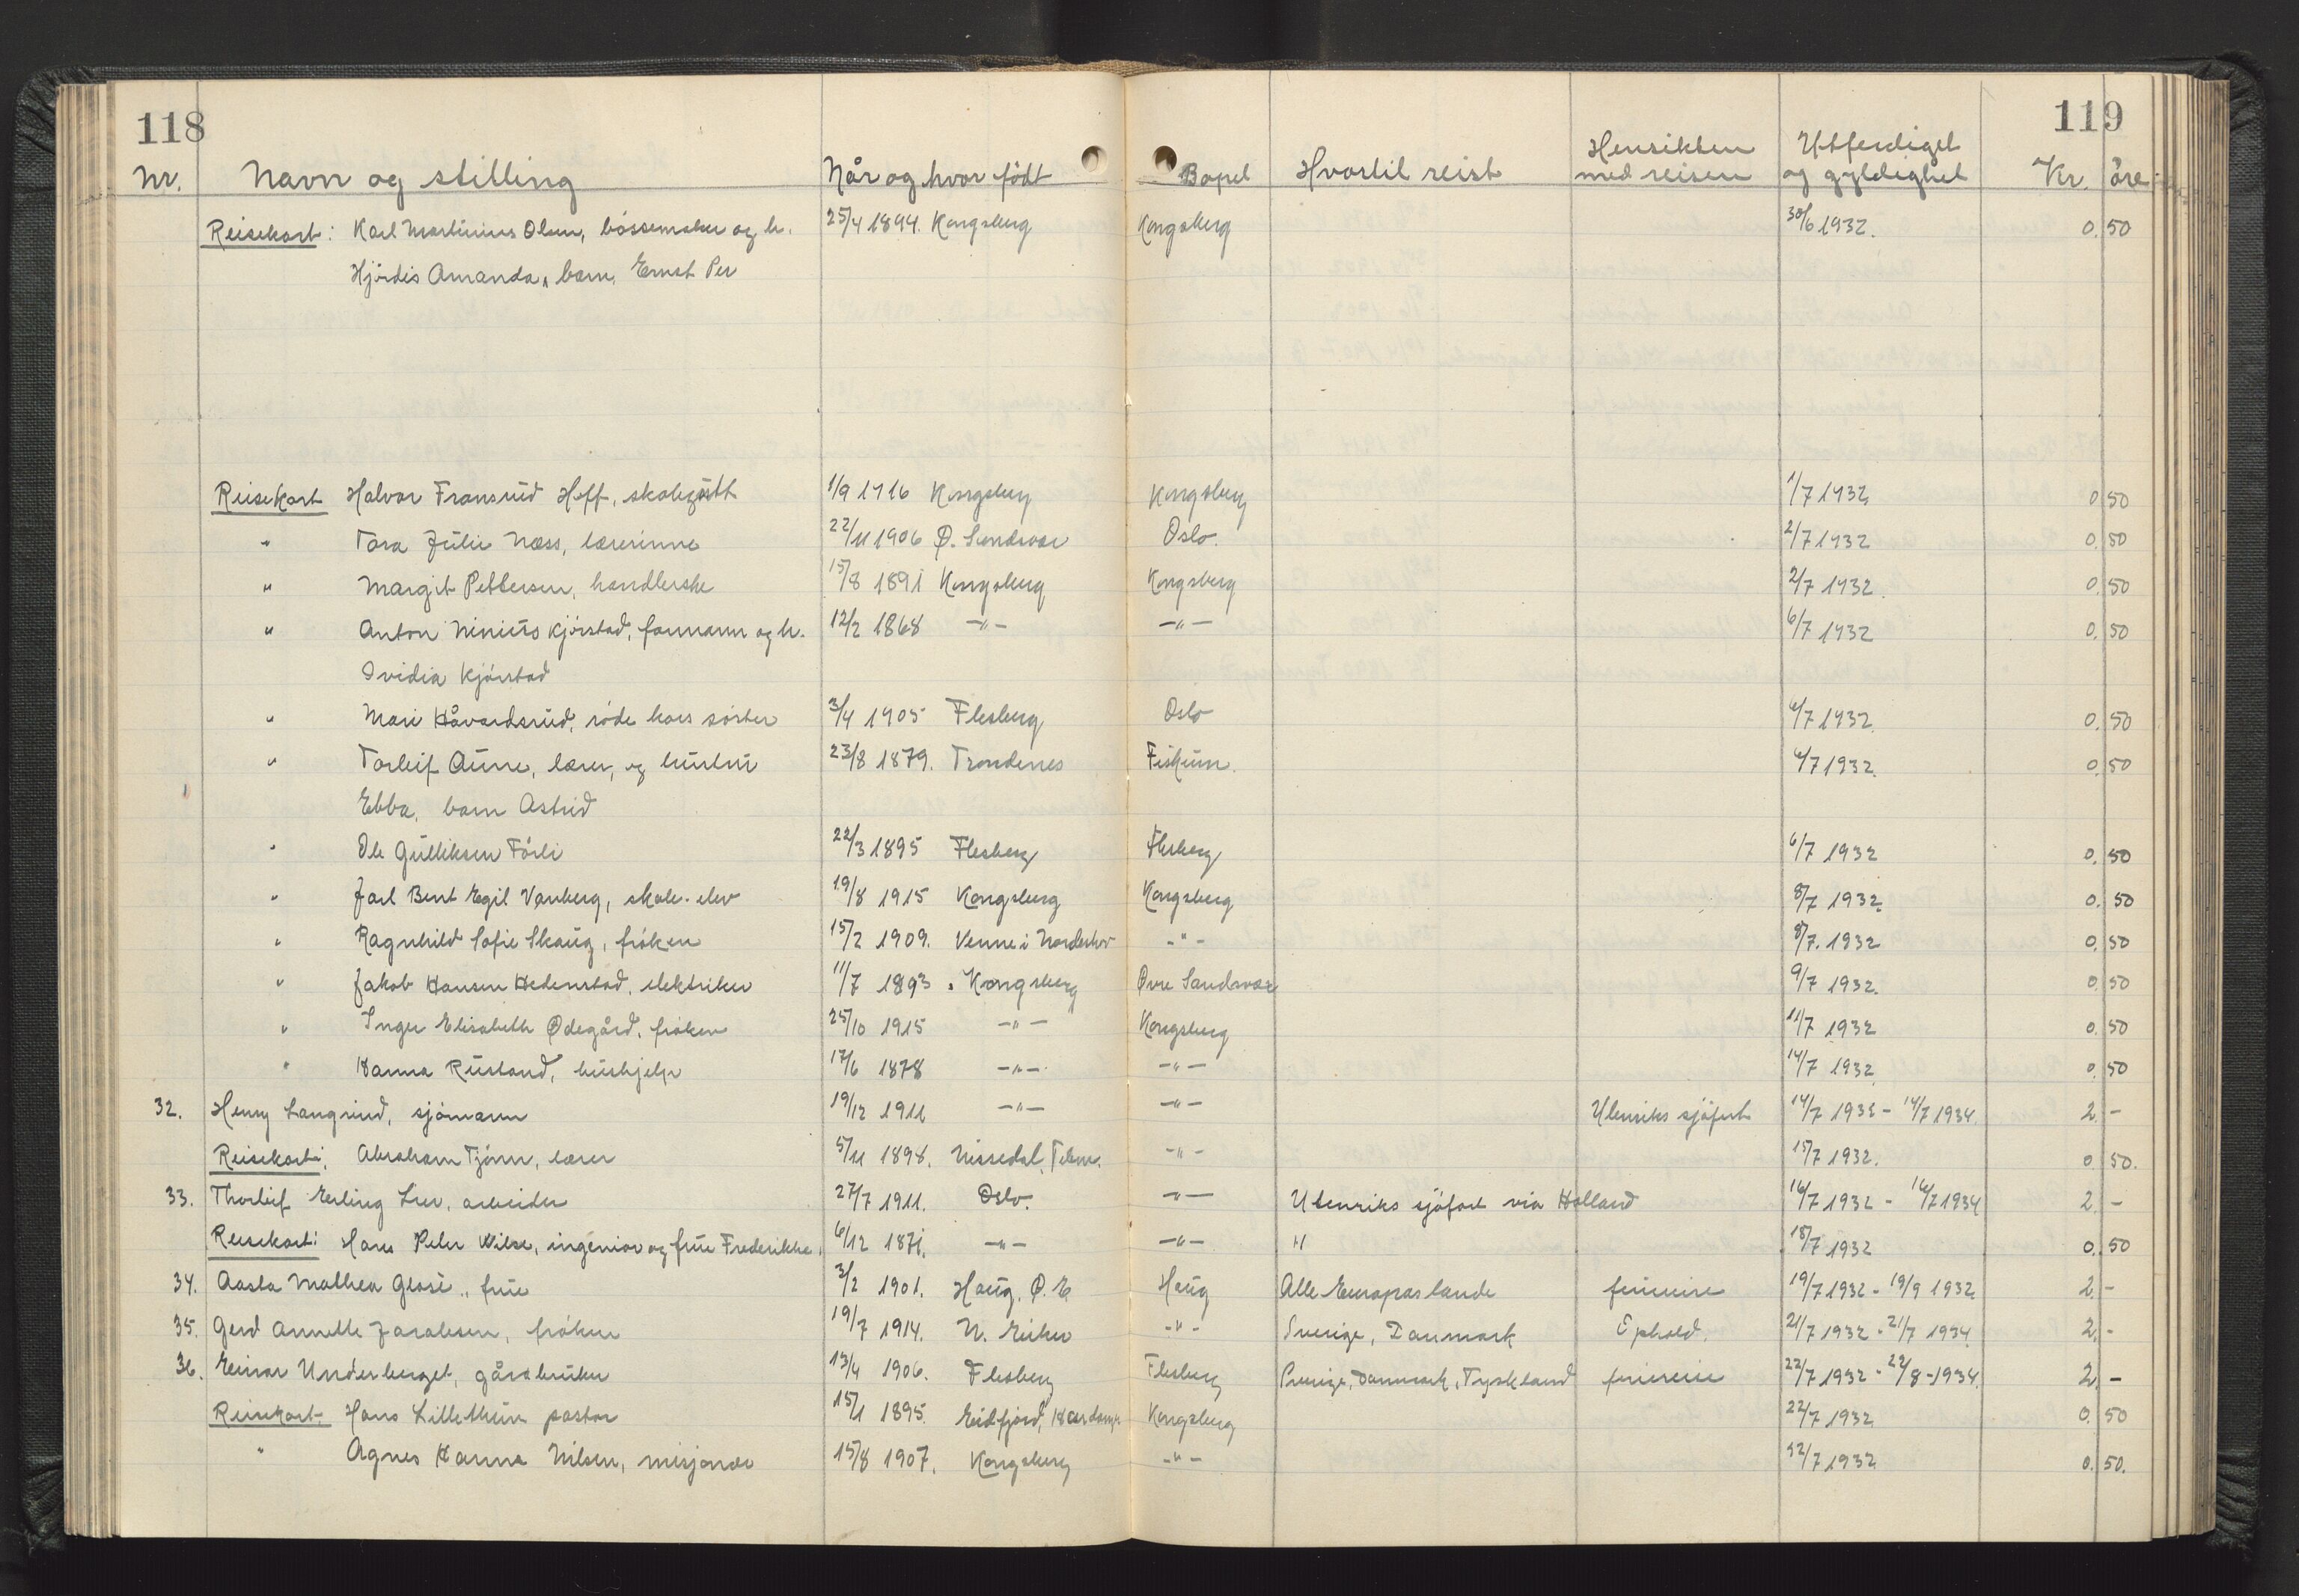 118
119
Nr. Navn og stilling Når og hvor født Bopel Hvortil reist Hensikten med reisen Utferdiget og gyldighet Kr. öre
Reisekort: Karl Martinius Olsen, bössemaker og h. 25/4 1894. Kongsberg Kongsberg 30/6 1932. 0. 50
Hjördis Amanda, barn, Ernst Per
Reisekort Halvor Fransrud Hoff, skolegutt 1/9 1916 Kongsberg Kongsberg 1/7 1932 0 50
" Tora Julie Næss, lærerinne 22/11 1906 Ø. Sandsvær Oslo. 2/7 1932 0. 50
" Margit Pettersen, handlerske 15/8 1891 Kongsberg Kongsberg 2/7 1932. 0. 50
" Anton Ninius Kjörstad, formann og h. 12/2 1868 -"- -"- 6/7 1932 0. 50
Ovidia Kjörstad
" Mari Håvardsrud, röde kors söster 3/4 1905 Flesberg Oslo 6/7 1932 0. 50
" Torleif Aune, lærer, og hustru 23/8 1879. Trondenes Fiskum. 6/7 1932. 0. 50
Ebba, barn Astrid
" Ole Gulliksen Förli 22/3 1895 Flesberg Flesberg 6/7 1932 0. 50
" Jarl Bent Egil Vanberg, skole-elev 19/8 1915 Kongsberg Kongsberg 8/7 1932. 0. 50
" Ragnhild Sofie Skaug, fröken 15/2 1909. Venne i Norderhov -"- 8/7. 1932 0. 50
" Jakob Hansen Hedenstad, elektriker 11/7 1893. Kongsberg Øvre Sandsvær 9/7 1932. 0. 50
" Inger Elisabeth Ødegård, fröken 25/10 1915 -"- Kongsberg 11/7 1932 0. 50
" Hanna Rustand, hushjelp 17/6 1878 -"- -"- 14/7 1932 0. 50
32. Henry Langrind, sjömann 19/12 1911 -"- -"- Utenriks sjöfart 14/7 1932 - 14/7 1934. 2. -
Reisekort: Abraham Tjönn, lærer 5/11 1898. Nissedal, Telem. -"- 15/7 1932. 0 50.
33. Thorleif Erling Lier, arbeider 27/7 1911. Oslo. -"- Utenriks sjöfart via Holland 16/7 1932 - 16/7 1934 2. -
Reisekort: Hans Peter Wilse, ingeniör og frue Frederikke. 6/12 1871. -"- -"- " 18/7 1932 0. 50
34. Aasta Mathea , frue 3/2 1901. Haug. Ø. E Haug Alle Europas lande feriereise 19/7 1932 - 19/9 1932. 2. -
35. Gerd Annette Jacobsen, fröken 19/7 1914. N. Eiker -"- Sverige, Danmark Ophold. 21/7 1932 - 21/7 1934 2. -
36. Einar Underberget, gårdbruker 13/4 1906. Flesberg Flesberg Sverige, Danmark, Tyskland feriereise 22/7 1932 - 22/8 - 1934. 2. -
Reisekort Hans Lillethun pastor 15/1 1895. Eidfjord, Hardanger Kongsberg 22/7 1932 0. 50
" Agnes Hanna Nilsen, misjonær 15/8 1907. Kongsberg -"- 22/7 1932 0. 50.